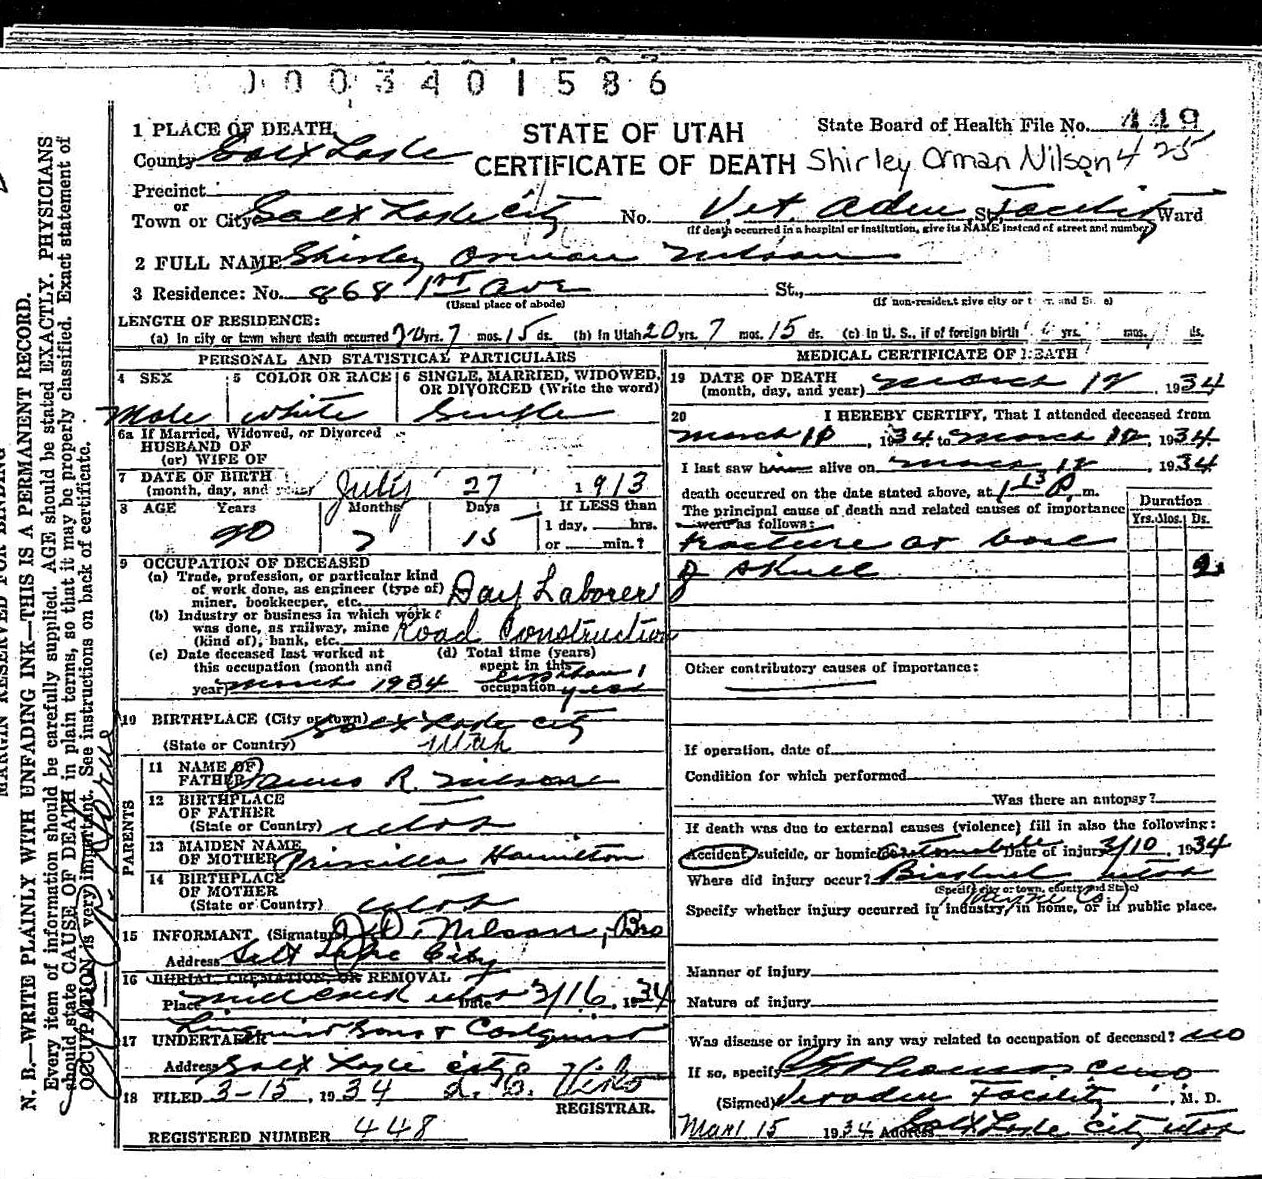 0003401586
1 PLACE OF DEATH
STATE OF UTAH
State Board of Health File No. 449
County Salt Lake
CERTIFICATE OF DEATH Shirley Orman Nilson 425
Precinct
or
Town or City Salt Lake City No. Vet. Adm. St., Facility Ward
(If death occurred in a hospital or institution, give its NAME instead of street and number)
2 FULL NAME Shirley Orman Nilson
3 Residence: No. 868 1st Ave St.,
(Usual place of abode) (If non-resident give city or
LENGTH OF RESIDENCE:
(a) In city or town where death occurred 20 yrs. 7 mos. 15 ds. (b) In Utah 20 yrs. 7 mos. 15 ds. (c) in U. S., if of foreign birth yrs. mos. ds.
PERSONAL AND STATISTICAL PARTICULARS
4 SEX Male
5 COLOR OR RACE white
6 SINGLE, MARRIED, WIDOWED, OR DIVORCED (Write the word) Single
6a If Married, Widowed, or Divorced
HUSBAND OF
(or) WIFE OF
7 DATE OF BIRTH
(month, day, and year) July 27 1913
8 AGE Years Months Days If LESS than
20 7 15 1 day, hrs.
or min.?
9 OCCUPATION OF DECEASED
(a) Trade, profession, or particular kind
of work done, as engineer (type of)
miner, bookkeeper, etc. Day Laborer
(b) Industry or business in which work
was done, as railway, mine
(kind of), bank, etc. Road Construction
(c) Date deceased last worked at
this occupation (month and
year) March 1934
(d) Total time (years)
spent in this
occupation less than 1 year
10 BIRTHPLACE (City or town) Salt Lake City
(State or Country) Utah
PARENTS
11 NAME OF
FATHER James R. Nilson
12 BIRTHPLACE
OF FATHER
(State or Country) Utah
13 MAIDEN NAME
OF MOTHER Priscilla Hamilton
14 BIRTHPLACE
OF MOTHER
(State or Country) Utah
15 INFORMANT (Signature) J. D. Nilson, Bro
Address Salt Lake City
16 BURIAL, CREMATION, OR REMOVAL
Place Mill Creek Utah Date 3/16, 1934
17 UNDERTAKER Lindquist Sons &
Address Salt Lake City
18 FILED 3-15, 1934
REGISTRAR.
REGISTERED NUMBER 448
MEDICAL CERTIFICATE OF DEATH
19 DATE OF DEATH
(month, day, and year) March 12 1934
20 I HEREBY CERTIFY, That I attended deceased from
March 10, 1934 to March 12, 1934
I last saw him alive on March 12 1934
death occurred on the date stated above, at 1 13 P. m.
The principal cause of death and related causes of importance
were as follows:
Duration
Yrs. Mos. Ds.
Fracture of base
of skull 2
Other contributory causes of importance:
If operation, date of
Condition for which performed
Was there an autopsy?
If death was due to external causes (violence) fill in also the following:
Accident, suicide, or homicide Automobile Date of injury 3/10 1934
Where did injury occur? Bicknell Utah
(Specify city or town, county and State)
Wayne Co.
Specify whether injury occurred in industry, in home, or in public place.
Manner of injury
Nature of injury
Was disease or injury in any way related to occupation of deceased? no
If so, specify
(Signed) Facility, M. D.
Mar 15 1934 Address Salt Lake City Utah
MARGIN RESERVED FOR BINDING
N. B.—WRITE PLAINLY WITH UNFADING INK—THIS IS A PERMANENT RECORD.
Every item of information should be carefully supplied. AGE should be stated EXACTLY. PHYSICIANS
should state CAUSE OF DEATH in plain terms, so that it may be properly classified. Exact statement of
OCCUPATION is very important. See instructions on back of certificate.